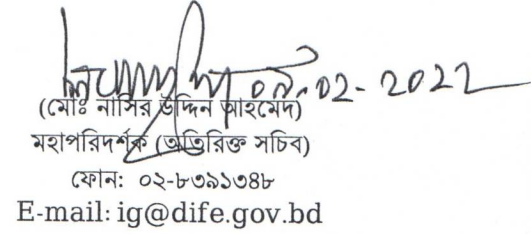 ০৯.02-2022
(মোঃ নাসির উদ্দিন আহমেদ)
মহাপরিদর্শক (অতিরিক্ত সচিব)
ফোন: ০২-৮৩৯১৩৪৮
E-mail: ig@dife.gov.bd